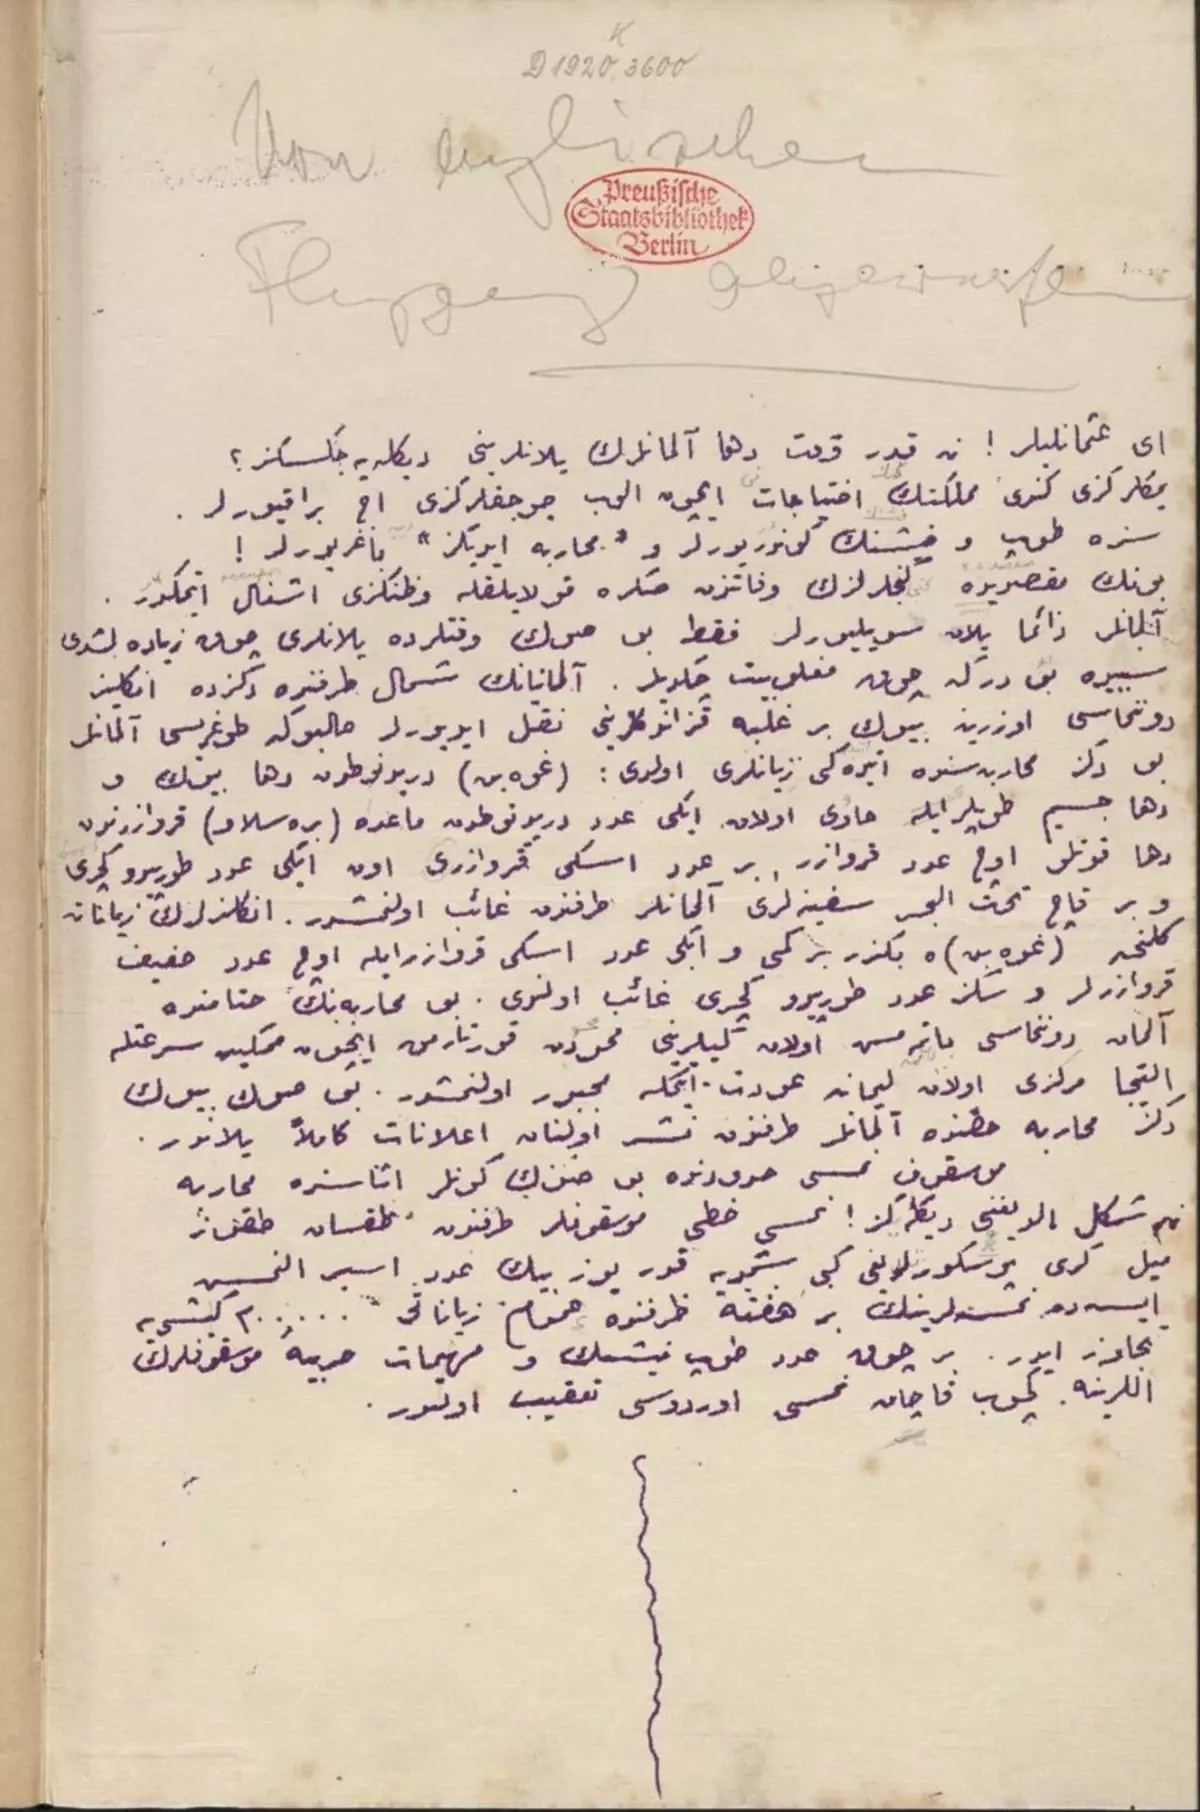 K
D 1920 3600
Von englischen
Preußische
Staatsbibliothek
Berlin
Flugzeug abgeworfen
ای عثمانلیلر ! نه قدر وقت دها آلمانلرك یلانلرینی دیكله یه جكسكز ؟
یمكلركزی كندی مملكتنك احتیاجات ایچون الوب چوجقلركزی اج براقیورلر .
سزه طوپ و فشنك كوندریورلر و " محاربه ایدیكز " باغریورلر !
بونك مقصدیده كنجلرلزك وفاتندن صكره قولایلقله وطنكزی اشغال ایتمكدر .
آلمانلر دائما یلان سویلیورلر فقط بو صوك وقتلرده یلانلری چوق زیاده لشدی
سببیده بودركه چوق مغلوبیت چكدیلر . آلمانیانك شمال طرفنده دكزده انكلیز
دوننماسی اوزرینه بیوك بر غلبه قزاندقلرینی نقل ایدیورلر حالبوكه طوغریسی آلمانلر
بو دكز محاربه سنده ایتدكی زیانلری اولدی : (غوه بن) دریدنوطدن دها بیوك و
دها جسیم طوپلر ایله حاوی اولان ایكی عدد دریدنوطدن ماعدا (بره سلاو) قروازرندن
دها قوتلو اوچ عدد قروازر بر عدد اسكی قروازری اون ایكی عدد طورپیدو كچری
و بر قاچ تحت البحر سفینه لری آلمانلر طرفندن غائب اولنمشدر . انكلیزلرك زیاناتنه
كلنجه (غوه بن)ه بكزر بر كمی و ایكی عدد اسكی قروازر ایله اوچ عدد خفیف
قروازرلر و سكز عدد طورپیدو كچری غائب اولندی . بو محاربه نك ختامنده
آلمان دوننماسی باتمامس اولان كمیلرینی محودن قورتارمق ایچون ممكن سرعتله
التجا مركزی اولان لیمانه عودت ایتمكه مجبور اولنمشدر . بو صوك بیوك
دكز محاربه حقنده آلمانلر طرفندن نشر اولنان اعلانات كاملاً یلاندر .
موسقوف نمسه حدودنده بو صوك كونلر اثناسنده محاربه
نه شكل الدیغنی دیكله یكز ! نمسه خطی موسقوفلر طرفندن طقسان طقوز
میل كری پوسكورلدیغی كبی شمدی یه قدر یوز بیك عدد اسیر النمسین
ایسه ده نمسه لرینك بر هفته ظرفنده عموم زیاناتی ٣٠٠٠٠٠ كیشی یه
تجاوز ایدر . بر چوق عدد طوپ فشنك و مهمات حربیه موسقوفلرك
اللرینه كچوب قاچان نمسه اوردوسی تعقیب اولنور .